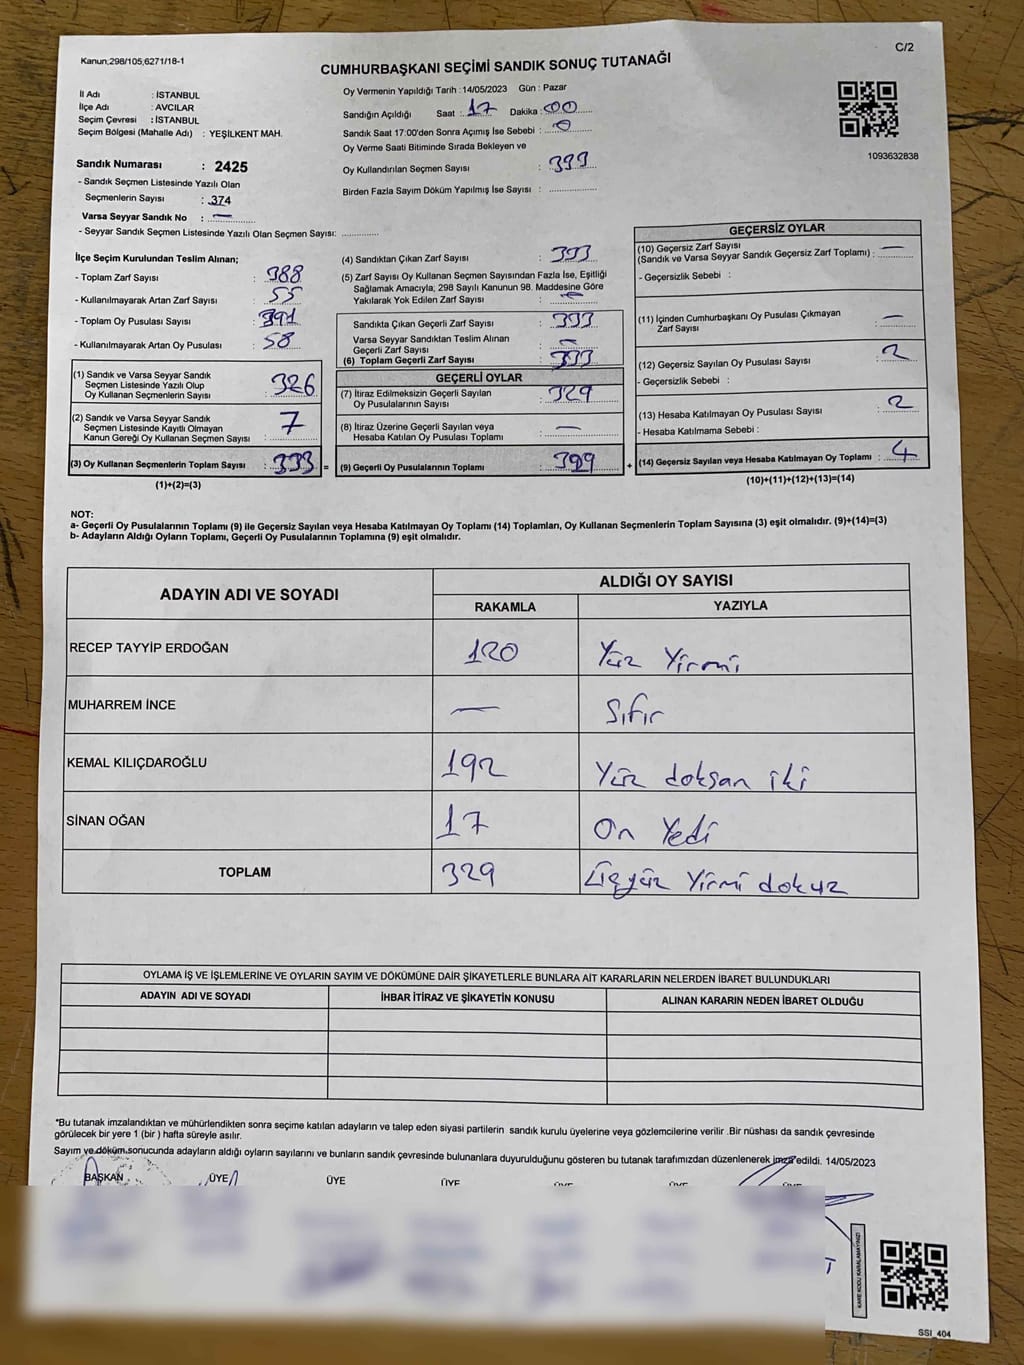 Kanun;298/105,6271/18-1
C/2
CUMHURBAŞKANI SEÇİMİ SANDIK SONUÇ TUTANAĞI
İl Adı : İSTANBUL
İlçe Adı : AVCILAR
Seçim Çevresi : İSTANBUL
Seçim Bölgesi (Mahalle Adı) : YEŞİLKENT MAH.
Sandık Numarası : 2425
- Sandık Seçmen Listesinde Yazılı Olan
Seçmenlerin Sayısı : 374
Varsa Seyyar Sandık No : —
- Seyyar Sandık Seçmen Listesinde Yazılı Olan Seçmen Sayısı: ............
Oy Vermenin Yapıldığı Tarih : 14/05/2023 Gün : Pazar
Sandığın Açıldığı Saat : 17 Dakika : 00
Sandık Saat 17:00'den Sonra Açımış İse Sebebi : 0
Oy Verme Saati Bitiminde Sırada Bekleyen ve
Oy Kullandırılan Seçmen Sayısı : 333
Birden Fazla Sayım Döküm Yapılmış İse Sayısı : ............
1093632838
İlçe Seçim Kurulundan Teslim Alınan;
- Toplam Zarf Sayısı : 388
- Kullanılmayarak Artan Zarf Sayısı : 55
- Toplam Oy Pusulası Sayısı : 391
- Kullanılmayarak Artan Oy Pusulası : 58
(1) Sandık ve Varsa Seyyar Sandık
Seçmen Listesinde Yazılı Olup
Oy Kullanan Seçmenlerin Sayısı : 326
(2) Sandık ve Varsa Seyyar Sandık
Seçmen Listesinde Kayıtlı Olmayan
Kanun Gereği Oy Kullanan Seçmen Sayısı : 7
(3) Oy Kullanan Seçmenlerin Toplam Sayısı : 333 =
(1)+(2)=(3)
(4) Sandıktan Çıkan Zarf Sayısı : 333
(5) Zarf Sayısı Oy Kullanan Seçmen Sayısından Fazla İse, Eşitliği
Sağlamak Amacıyla, 298 Sayılı Kanunun 98. Maddesine Göre
Yakılarak Yok Edilen Zarf Sayısı : —
Sandıkta Çıkan Geçerli Zarf Sayısı : 333
Varsa Seyyar Sandıktan Teslim Alınan
Geçerli Zarf Sayısı : —
(6) Toplam Geçerli Zarf Sayısı : 333
GEÇERLİ OYLAR
(7) İtiraz Edilmeksizin Geçerli Sayılan
Oy Pusulalarının Sayısı : 329
(8) İtiraz Üzerine Geçerli Sayılan veya
Hesaba Katılan Oy Pusulası Toplamı : —
(9) Geçerli Oy Pusulalarının Toplamı : 329 +
GEÇERSİZ OYLAR
(10) Geçersiz Zarf Sayısı
(Sandık ve Varsa Seyyar Sandık Geçersiz Zarf Toplamı) : —
- Geçersizlik Sebebi :
(11) İçinden Cumhurbaşkanı Oy Pusulası Çıkmayan
Zarf Sayısı : —
(12) Geçersiz Sayılan Oy Pusulası Sayısı : 2
- Geçersizlik Sebebi :
(13) Hesaba Katılmayan Oy Pusulası Sayısı : 2
- Hesaba Katılmama Sebebi :
(14) Geçersiz Sayılan veya Hesaba Katılmayan Oy Toplamı : 4
(10)+(11)+(12)+(13)=(14)
NOT:
a- Geçerli Oy Pusulalarının Toplamı (9) ile Geçersiz Sayılan veya Hesaba Katılmayan Oy Toplamı (14) Toplamları, Oy Kullanan Seçmenlerin Toplam Sayısına (3) eşit olmalıdır. (9)+(14)=(3)
b- Adayların Aldığı Oyların Toplamı, Geçerli Oy Pusulalarının Toplamına (9) eşit olmalıdır.
ADAYIN ADI VE SOYADI ALDIĞI OY SAYISI
RAKAMLA YAZIYLA
RECEP TAYYİP ERDOĞAN 120 Yüz Yirmi
MUHARREM İNCE — Sıfır
KEMAL KILIÇDAROĞLU 192 Yüz doksan iki
SİNAN OĞAN 17 On Yedi
TOPLAM 329 Üçyüz Yirmi dokuz
OYLAMA İŞ VE İŞLEMLERİNE VE OYLARIN SAYIM VE DÖKÜMÜNE DAİR ŞİKAYETLERLE BUNLARA AİT KARARLARIN NELERDEN İBARET BULUNDUKLARI
ADAYIN ADI VE SOYADI İHBAR İTİRAZ VE ŞİKAYETİN KONUSU ALINAN KARARIN NEDEN İBARET OLDUĞU
*Bu tutanak imzalandıktan ve mühürlendikten sonra seçime katılan adayların ve talep eden siyasi partilerin sandık kurulu üyelerine veya gözlemcilerine verilir .Bir nüshası da sandık çevresinde
görülecek bir yere 1 (bir ) hafta süreyle asılır.
Sayım ve döküm sonucunda adayların aldığı oyların sayılarını ve bunların sandık çevresinde bulunanlara duyurulduğunu gösteren bu tutanak tarafımızdan düzenlenerek imza edildi. 14/05/2023
BAŞKAN ÜYE ÜYE ÜYE
KARE KODU KARALAMAYINIZ!
SSI_404